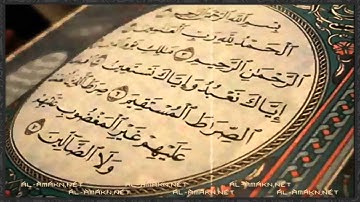 بِسْمِ اللَّهِ الرَّحْمَٰنِ الرَّحِيمِ
الْحَمْدُ لِلَّهِ رَبِّ الْعَالَمِينَ
الرَّحْمَٰنِ الرَّحِيمِ مَالِكِ
إِيَّاكَ نَعْبُدُ وَإِيَّاكَ نَسْتَعِينُ
الصِّرَاطَ الْمُسْتَقِيمَ صِرَاطَ
عَلَيْهِمْ غَيْرِ الْمَغْضُوبِ عَلَيْهِمْ
وَلَا الضَّالِّينَ
AL-AMAKN.NET AL-AMAKN.NET AL-AMAKN.NET AL-AMAKN.NET
AL-AMAKN.NET AL-AMAKN.NET AL-AMAKN.NET